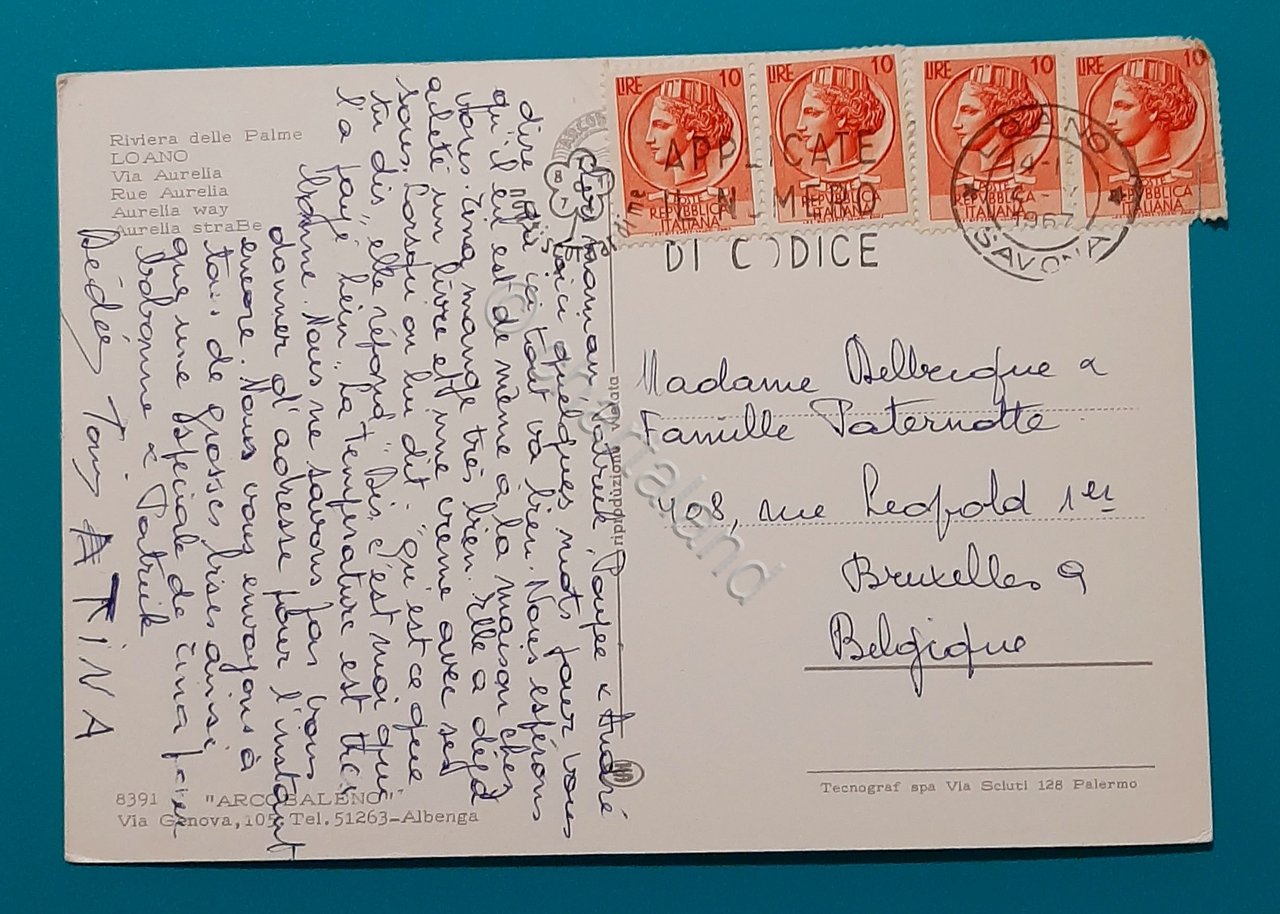 Riviera delle Palme
LOANO
Via Aurelia
Rue Aurelia
Aurelia way
Aurelia straBe
LIRE 10
POSTE
REPVBBLICA
ITALIANA
LIRE 10
REPVBBLICA
ITALIANA
LIRE 10
REPVBBLICA
ITALIANA
LIRE 10
REPVBBLICA
ITALIANA
APPLICATE
IL NUMERO
DI CODICE
LOANO
1967
SAVONA
maman, Patrick, Poupée & André
Voici quelques mots pour vous
dire que tout va bien. Nous espérons
qu'il est de même à la maison chez
vous. Tina mange très bien. Elle a déjà
acheté un livre et une creme avec ses
sous. Lorsqu'on lui dit : "qu'est ce que
tu dis", elle répond "Dis, c'est moi que
l'a payé hein". La température est très
bonne. Nous ne savons pas vous
donner d'adresse pour l'instant
encore. Nous vous envoyons à
tous de grosses bises ainsi
que une spéciale de Tina pour
bobonne & Patrick
Dédé, Tony
A TiNA
Madame Delbecque &
Famille Paternotte
908, rue Leopold 1er
Bruxelles 9
Belgique
riproduzione vietata
8391 "ARCOBALENO"
Via Genova,105 Tel.51263-Albenga
Tecnograf spa Via Scluti 128 Palermo
© cartaland